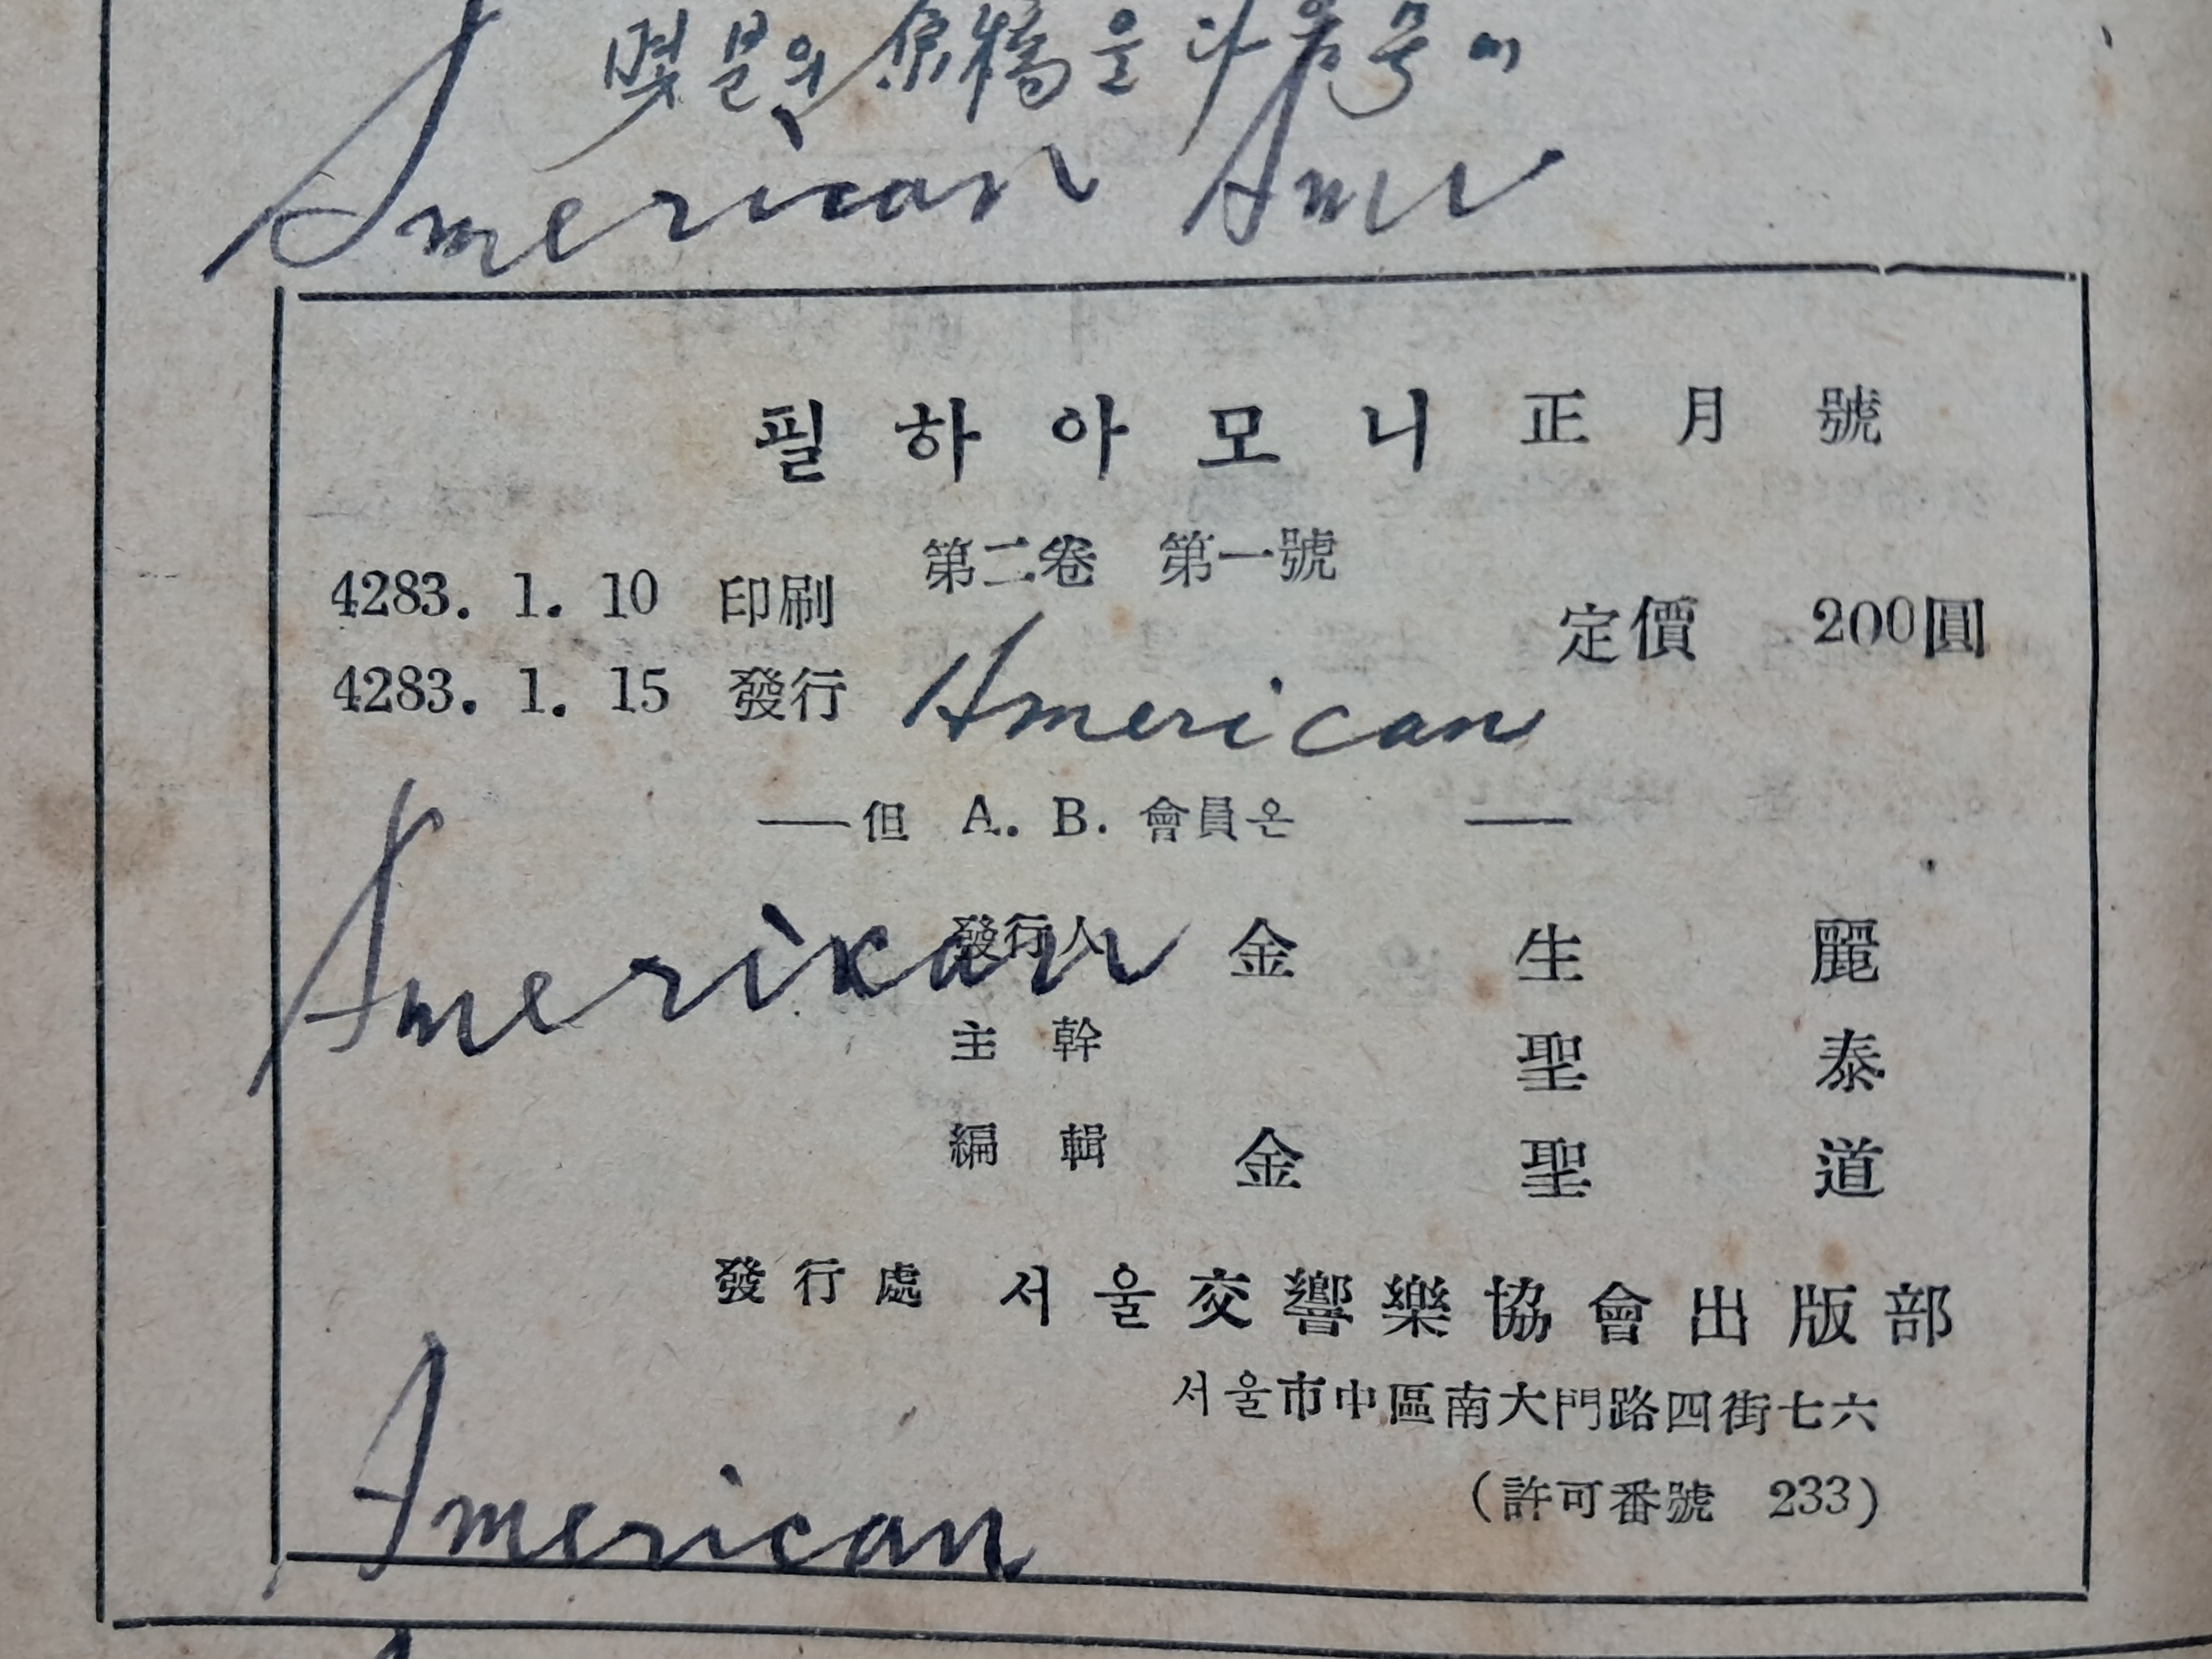 몇분의 原稿을 다음号에
American Am
필하아모니 正月號
第二卷 第一號
4283. 1. 10 印刷
4283. 1. 15 發行
定價 200圓
American
—但 A. B. 會員은 —
American
發行人 金生麗
主幹 聖泰
編輯 金聖道
發行處 서울交響樂協會出版部
서울市中區南大門路四街七六
(許可番號 233)
American